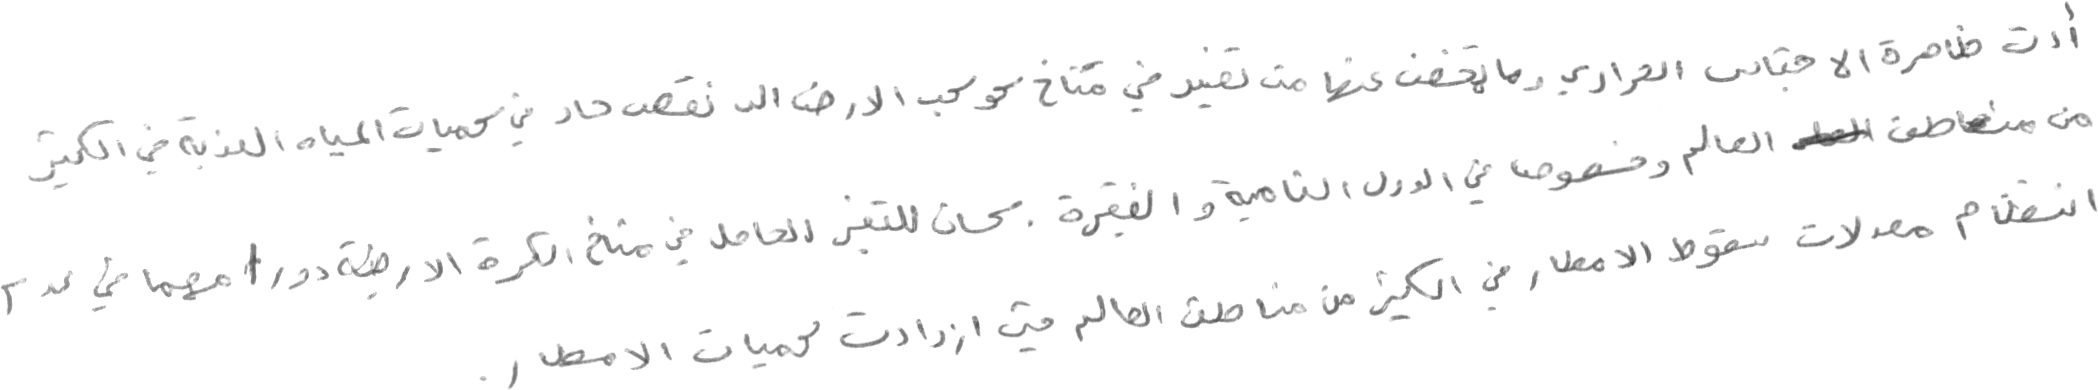 أدت ظاهرة الاحتباس الحراري وما تمخض عنها من تغيير في مناخ كوكب الارض الى نقص حاد في كميات المياه العذبة في الكثير
من مناطق العالم وخصوصا في الدول النامية والفقيرة . كان للتغير الحاصل في مناخ الكرة الارضية دورا مهما في عدم
انتظام معدلات سقوط الامطار في الكثير من مناطق العالم حيث ازدادت كميات الامطار .